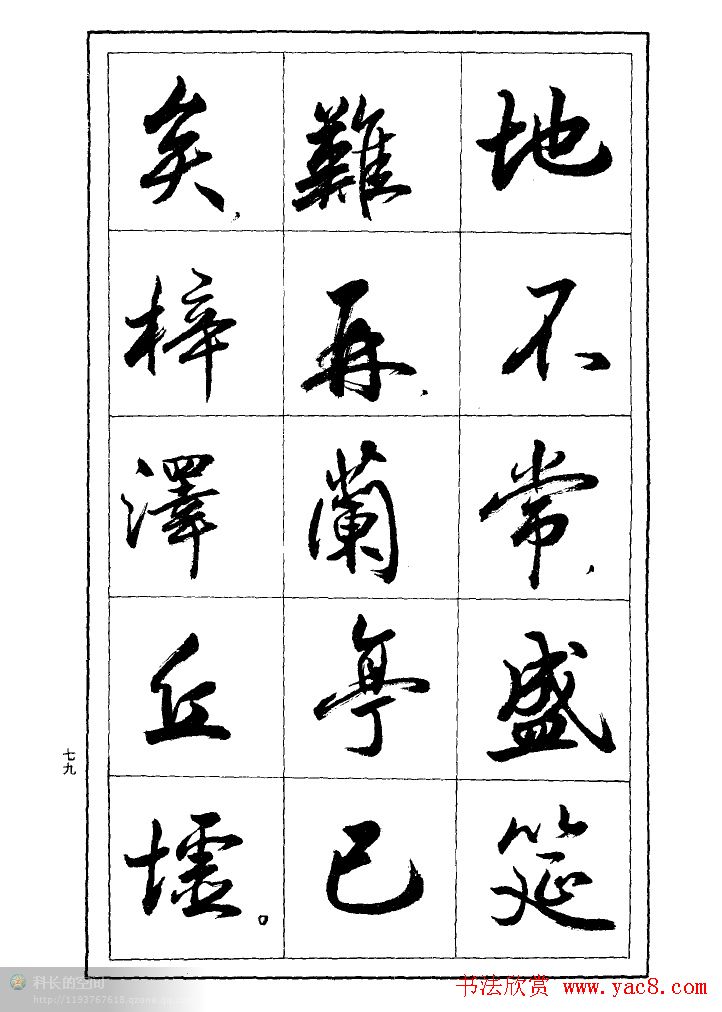 地不常，盛筵
難再，蘭亭已
矣，梓澤丘墟。
七九
科长的空间
http://1193767618.qzone.qq.com
书法欣赏 www.yac8.com